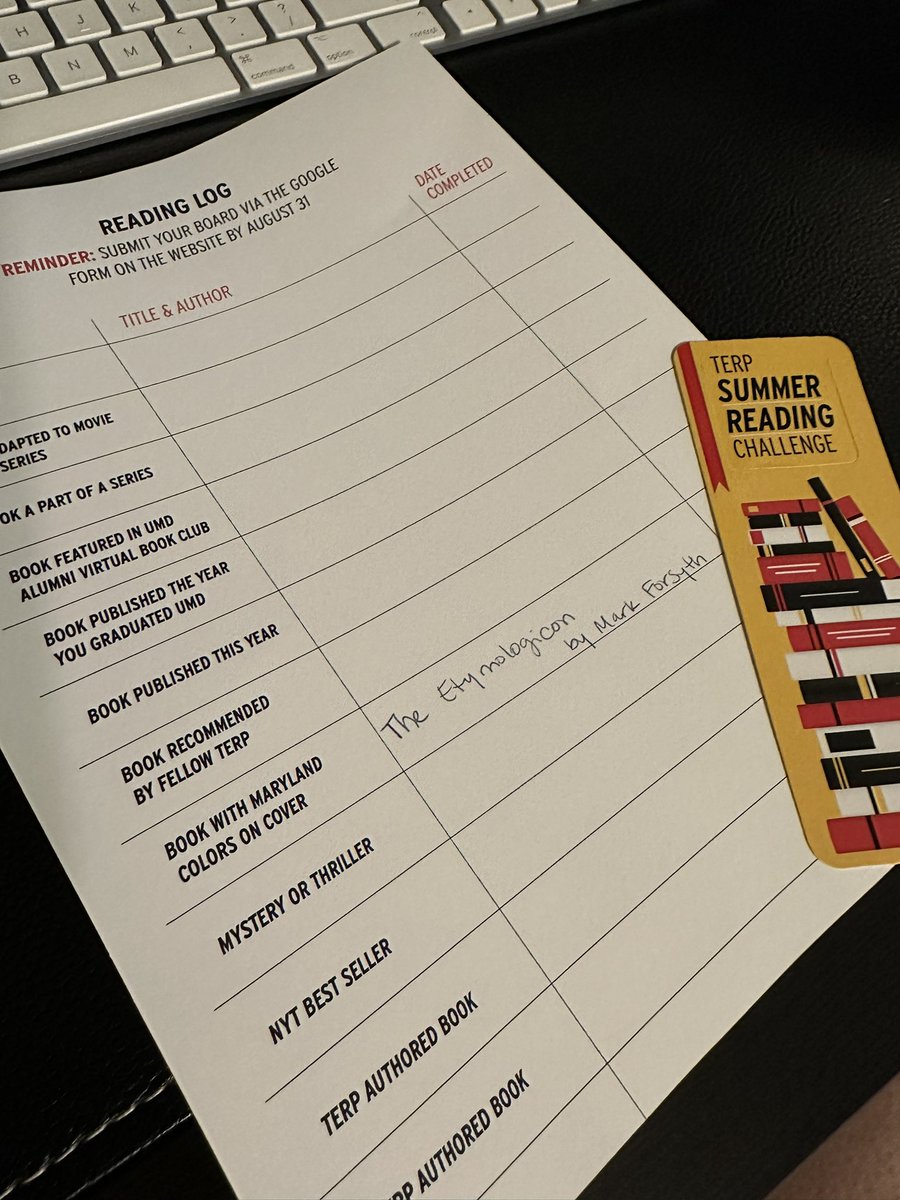 H
J
K
<
,
>
.
?
/
B
N
M
⌘
command
⌥
option
control
READING LOG
REMINDER: SUBMIT YOUR BOARD VIA THE GOOGLE
FORM ON THE WEBSITE BY AUGUST 31
TITLE & AUTHOR
DATE
COMPLETED
DAPTED TO MOVIE
SERIES
OK A PART OF A SERIES
BOOK FEATURED IN UMD
ALUMNI VIRTUAL BOOK CLUB
BOOK PUBLISHED THE YEAR
YOU GRADUATED UMD
BOOK PUBLISHED THIS YEAR
BOOK RECOMMENDED
BY FELLOW TERP
The Etymologicon
by Mark Forsyth
BOOK WITH MARYLAND
COLORS ON COVER
MYSTERY OR THRILLER
NYT BEST SELLER
TERP AUTHORED BOOK
RP AUTHORED BOOK
TERP
SUMMER
READING
CHALLENGE